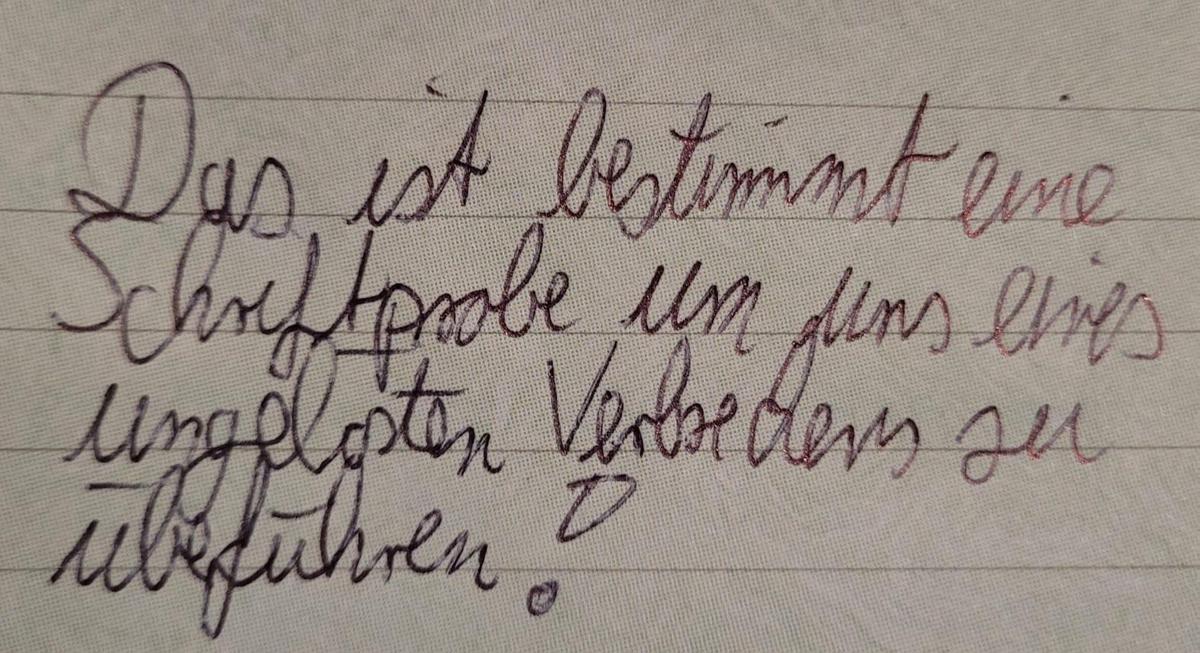 Das ist bestimmt eine
Schriftprobe um uns eines
ungelösten Verbrechens zu
überführen!